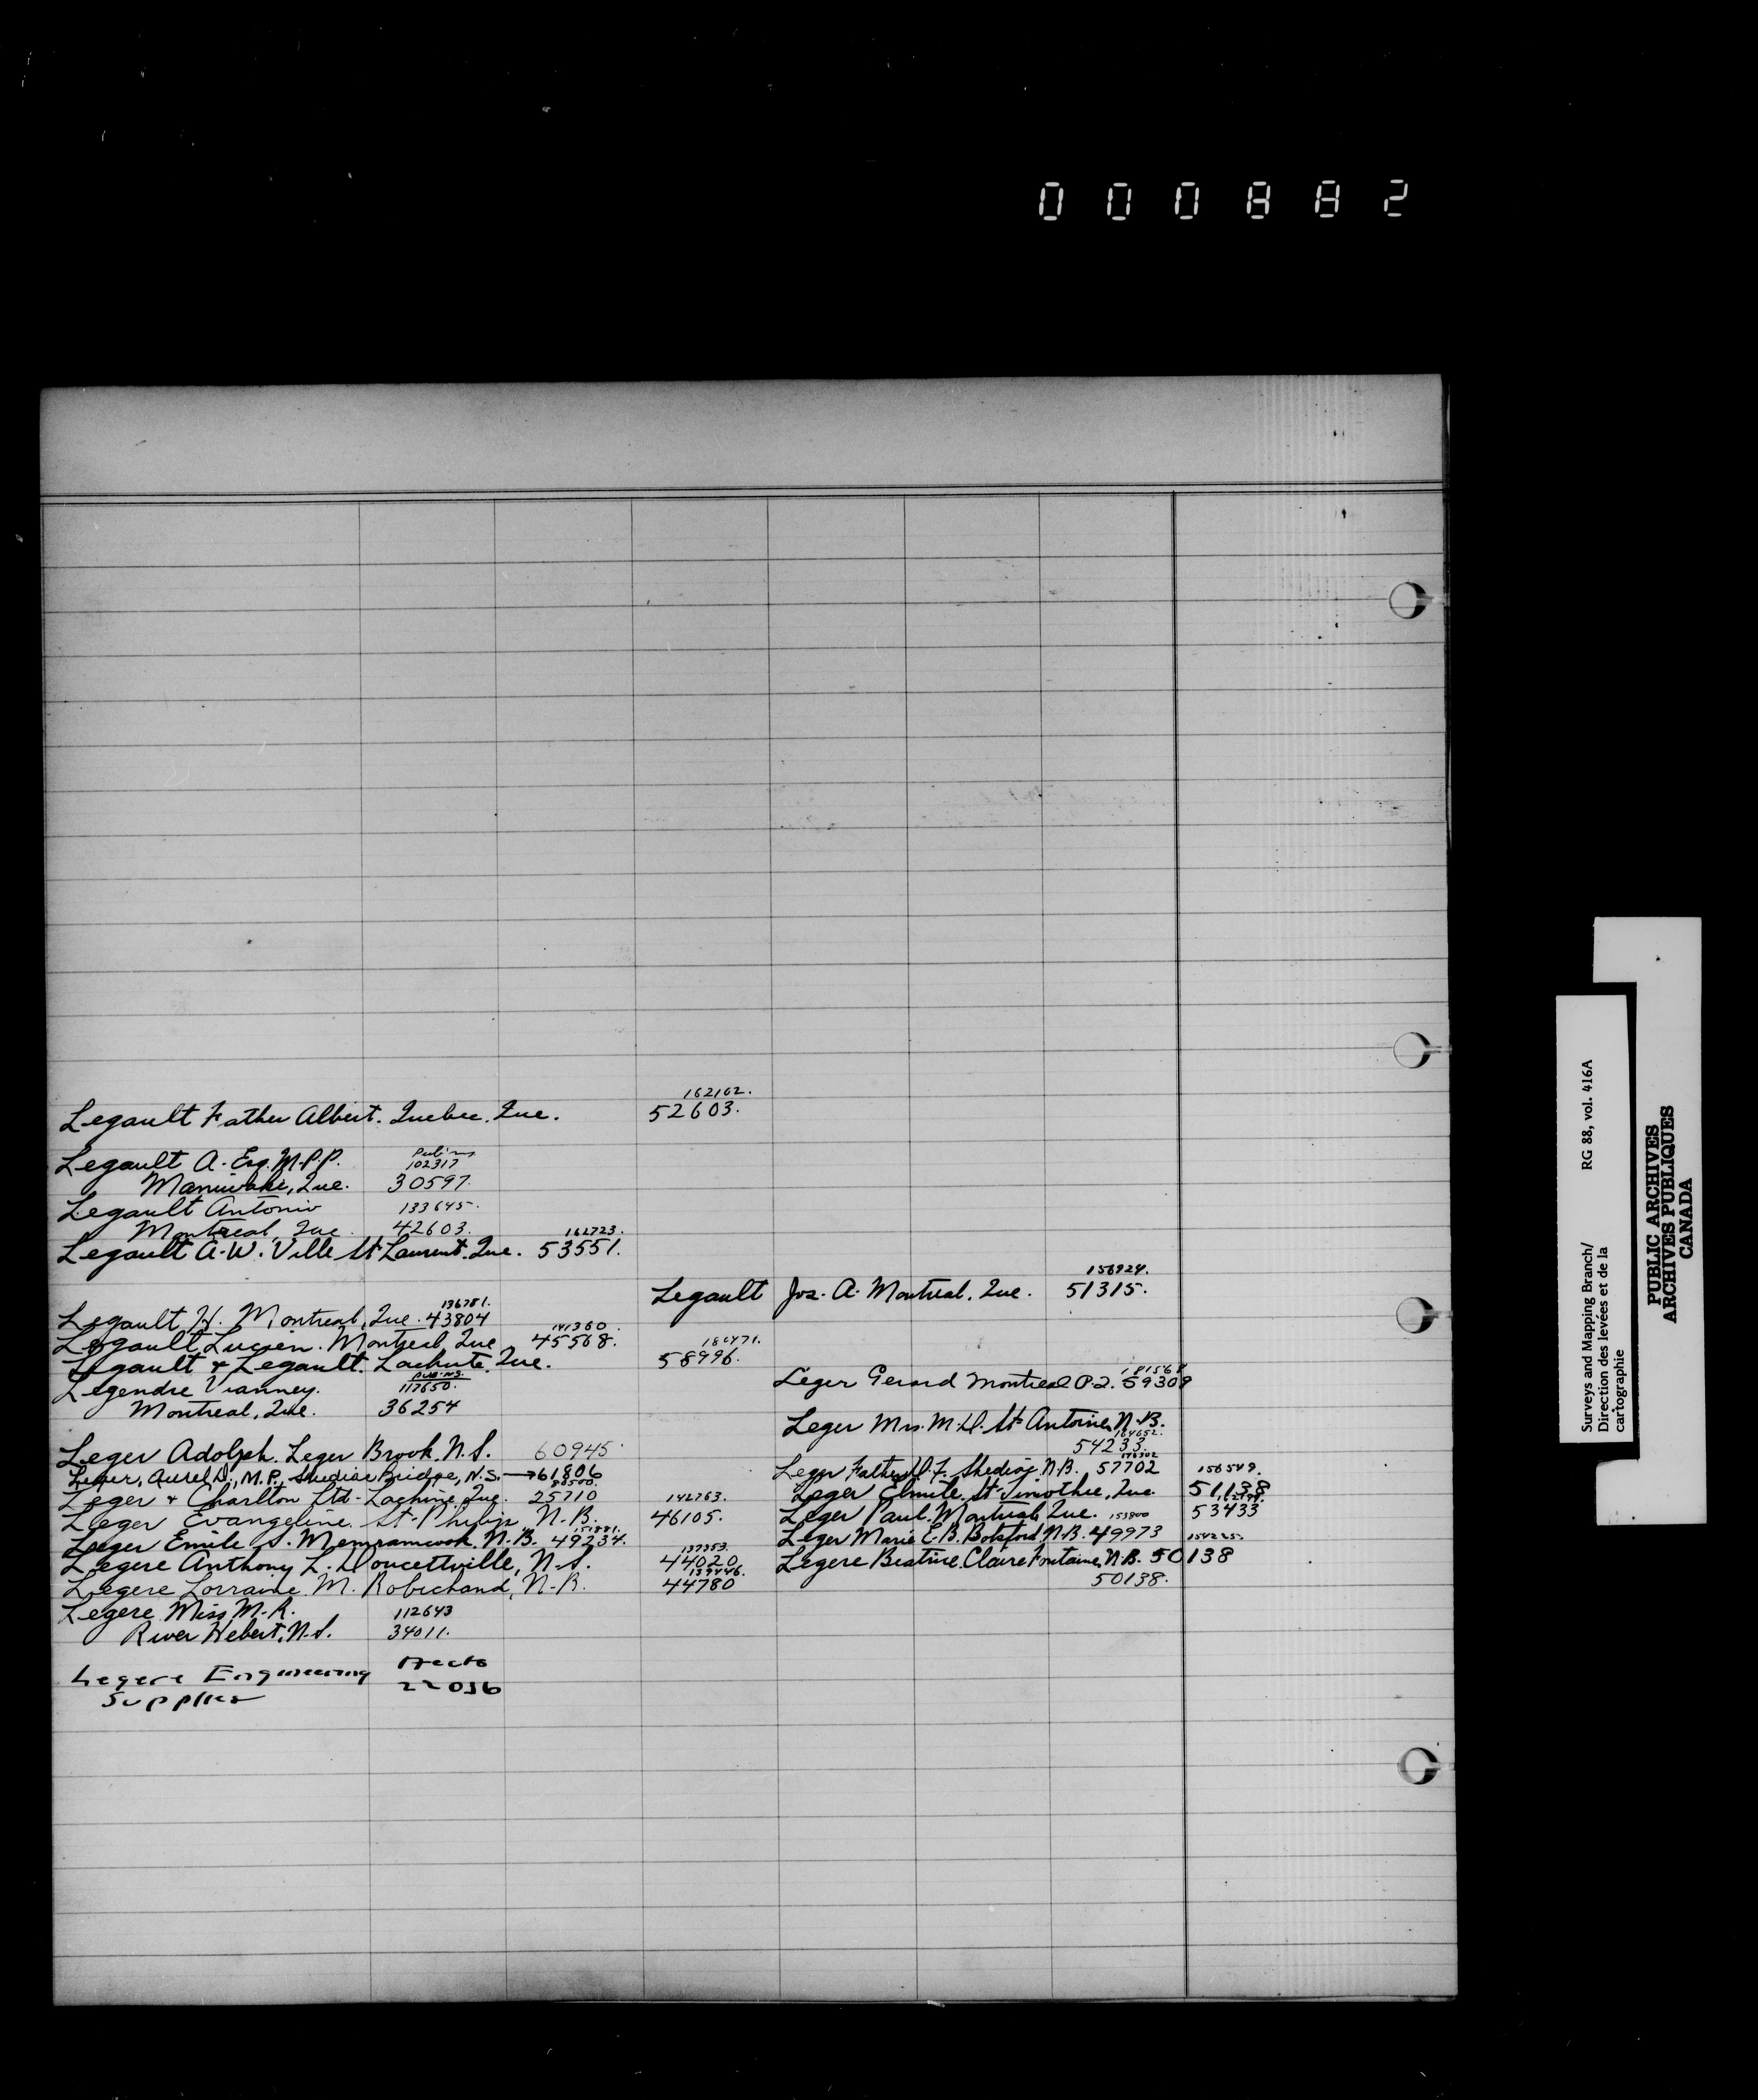 000882
162162.
Legault Father Albert. Quebec. Que. 52603.
Legault A. Esq. M.P.P. 102317
Maniwaki, Que. 30597.
Legault Antonio 133645.
Montreal, Que. 42603.
162723.
Legault A.W. Ville St Laurent. Que. 53551.
156924.
Legault Jos. A. Montreal. Que. 51315.
136781.
Legault H. Montreal, Que. 43804
141360.
Legault Lucien. Montreal, Que 45568.
Legault & Legault. Lachute. Que. 58996.
Legendre Vianney. 117650.
Montreal, Que. 36254
Leger Gerard Montreal P.Q. 59309
Leger Mrs. M.D. St Antoine N.B.
164652.
54233.
Leger Adolph. Leger Brook. N.S. 60945
Leger, Aurel D., M.P., Shediac Bridge, N.S. → 61806
Leger Father D.F. Shediac N.B. 57702
156549.
Leger & Charlton Ltd - Lachine, Que. 25710
Leger Elmile. St Timothie, Que. 51138
142763.
Leger Evangeline. St. Philip, N.B. 46105.
Leger Paul. Montreal, Que. 53433
151881.
Leger Emile S. Memramcook. N.B. 49234.
153800
Leger Marie E.B. Botsford, N.B. 49973
137353.
Legere Anthony L. Doucettville, N.S. 44020
154225.
Legere Beatrice. Claire Fontaine, N.B. 50138
50138.
139446.
Legere Lorraine. M. Robichaud, N.B. 44780
Legere Miss M.R. 112643
River Hebert, N.S. 34011.
Legere Engineering
Supplies 22036
Surveys and Mapping Branch/
Direction des levées et de la
cartographie
RG 88, vol. 416A
PUBLIC ARCHIVES
ARCHIVES PUBLIQUES
CANADA